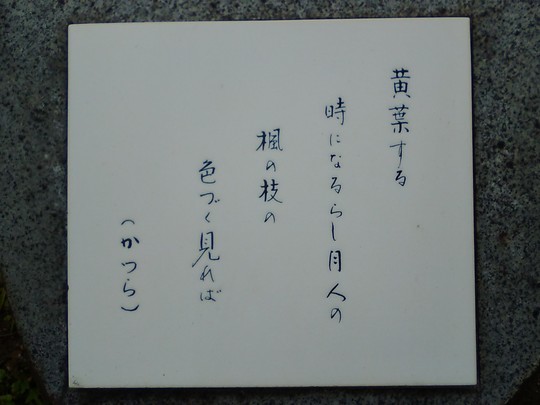 黄葉する
時になるらし月人の
楓の枝の
色づく見れば
(かつら)